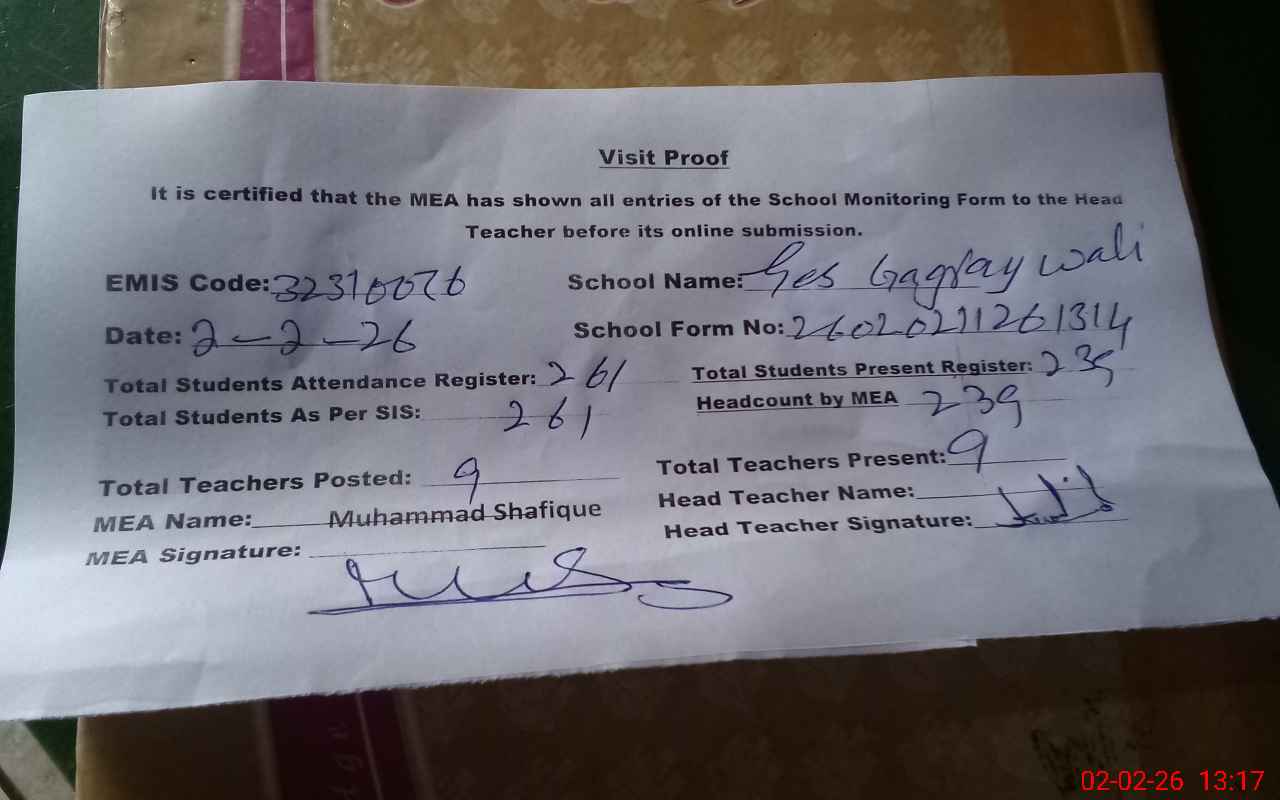 Visit Proof
It is certified that the MEA has shown all entries of the School Monitoring Form to the Head
Teacher before its online submission.
EMIS Code: School Name: Ges Gagray wali
Date: 2-2-26 School Form No:
Total Students Attendance Register: 261 Total Students Present Register: 239
Total Students As Per SIS: 261 Headcount by MEA 239
Total Teachers Posted: 9 Total Teachers Present: 9
MEA Name: Muhammad Shafique Head Teacher Name:
MEA Signature: Head Teacher Signature:
02-02-26 13:17